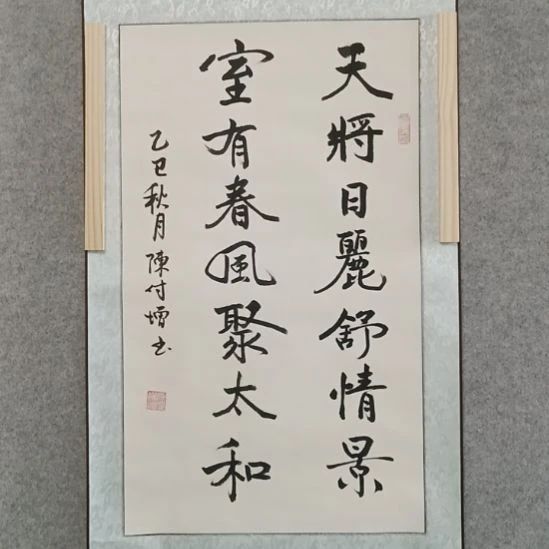 天將日麗舒情景
室有春風聚太和
乙巳秋月陳付增书